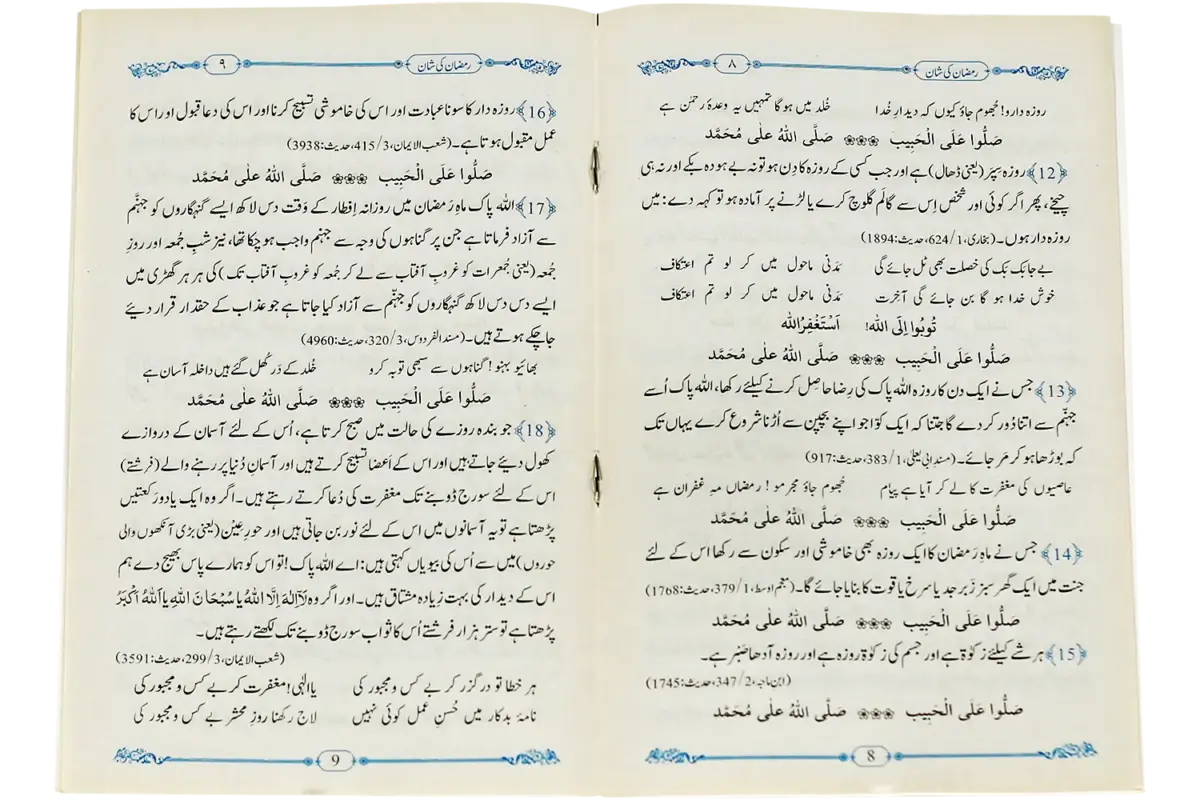 ۸ رمضان کی شان
روزہ دارو! جُھوم جاؤ کیوں کہ دیدارِ خُدا خُلد میں ہوگا تمہیں یہ وعدۂ رحمٰن ہے
صَلُّوا عَلَی الْحَبِیب ❀❀❀ صَلَّی اللهُ عَلٰی مُحَمَّد
﴿12﴾ روزہ سِپَر (یعنی ڈھال) ہے اور جب کسی کے روزہ کا دِن ہو تو نہ بے ہودہ بکے اور نہ ہی
چیخے، پھر اگر کوئی اور شخص اِس سے گالَم گلوچ کرے یا لڑنے پر آمادہ ہو تو کہہ دے: میں
روزہ دار ہوں۔ (بخاری، 1/624، حدیث: 1894)
بے جا بَک بَک کی خصلت بھی ٹل جائے گی مَدَنی ماحول میں کر لو تم اعتکاف
خوش خدا ہو گا بن جائے گی آخِرت مَدَنی ماحول میں کر لو تم اعتکاف
تُوبُوا اِلَی الله! اَسْتَغْفِرُ الله
صَلُّوا عَلَی الْحَبِیب ❀❀❀ صَلَّی اللهُ عَلٰی مُحَمَّد
﴿13﴾ جس نے ایک دن کا روزہ اللہ پاک کی رِضا حاصِل کرنے کیلئے رکھا، اللہ پاک اُسے
جہنّم سے اتنا دُور کر دے گا جتنا کہ ایک کوّا جو اپنے بچپن سے اُڑنا شروع کرے یہاں تک
کہ بوڑھا ہو کر مَر جائے۔ (مسند ابی یعلیٰ، 1/383، حدیث: 917)
عاصیوں کی مغفرت کا لے کر آیا ہے پیام جُھوم جاؤ مجرمو! رمضاں مہِ غفران ہے
صَلُّوا عَلَی الْحَبِیب ❀❀❀ صَلَّی اللهُ عَلٰی مُحَمَّد
﴿14﴾ جس نے ماہِ رَمضان کا ایک روزہ بھی خاموشی اور سکون سے رکھا اس کے لئے
جنت میں ایک گھر سبز زَبر جد یا سرخ یا قوت کا بنایا جائے گا۔ (معجم اوسط، 1/379، حدیث: 1768)
صَلُّوا عَلَی الْحَبِیب ❀❀❀ صَلَّی اللهُ عَلٰی مُحَمَّد
﴿15﴾ ہر شے کیلئے زکوٰۃ ہے اور جسم کی زکوٰۃ روزہ ہے اور روزہ آدھا صَبْر ہے۔
(ابن ماجہ، 2/347، حدیث: 1745)
صَلُّوا عَلَی الْحَبِیب ❀❀❀ صَلَّی اللهُ عَلٰی مُحَمَّد
8
۹ رمضان کی شان
﴿16﴾ روزہ دار کا سونا عبادت اور اس کی خاموشی تسبیح کرنا اور اس کی دعا قبول اور اس کا
عمل مقبول ہوتا ہے۔ (شعب الایمان، 3/415، حدیث: 3938)
صَلُّوا عَلَی الْحَبِیب ❀❀❀ صَلَّی اللهُ عَلٰی مُحَمَّد
﴿17﴾ اللہ پاک ماہِ رَمضان میں روزانہ اِفطار کے وَقت دس لاکھ ایسے گنہگاروں کو جہنّم
سے آزاد فرماتا ہے جن پر گناہوں کی وجہ سے جہنم واجب ہو چکا تھا، نیز شبِ جُمعہ اور روزِ
جُمعہ (یعنی جُمعرات کو غروبِ آفتاب سے لے کر جُمعہ کو غروبِ آفتاب تک) کی ہر ہر گھڑی میں
ایسے دس دس لاکھ گنہگاروں کو جہنّم سے آزاد کیا جاتا ہے جو عذاب کے حقدار قرار دیئے
جاچکے ہوتے ہیں۔ (مسند الفردوس، 3/320، حدیث: 4960)
بھائیو بہنو! گناہوں سے سبھی توبہ کرو خُلد کے دَر کُھل گئے ہیں داخلہ آسان ہے
صَلُّوا عَلَی الْحَبِیب ❀❀❀ صَلَّی اللهُ عَلٰی مُحَمَّد
﴿18﴾ جو بندہ روزے کی حالت میں صبح کرتا ہے، اُس کے لئے آسمان کے دروازے
کھول دیئے جاتے ہیں اور اس کے اَعضا تسبیح کرتے ہیں اور آسمانِ دُنیا پر رہنے والے (فرشتے)
اس کے لئے سورج ڈوبنے تک مغفرت کی دُعا کرتے رہتے ہیں۔ اگر وہ ایک یا دو رکعتیں
پڑھتا ہے تو یہ آسمانوں میں اس کے لئے نور بن جاتی ہیں اور حورِ عِیْن (یعنی بڑی آنکھوں والی
حوروں) میں سے اُس کی بیویاں کہتی ہیں: اے اللہ پاک! تو اس کو ہمارے پاس بھیج دے ہم
اس کے دیدار کی بہت زیادہ مشتاق ہیں۔ اور اگر وہ لَآ اِلٰهَ اِلَّا اللهُ یا سُبْحَانَ اللهِ یا اَللهُ اَکْبَرُ
پڑھتا ہے تو ستر ہزار فرشتے اُس کا ثواب سورج ڈوبنے تک لکھتے رہتے ہیں۔
(شعب الایمان، 3/299، حدیث: 3591)
ہر خطا تو درگزر کر بے کس و مجبور کی یا الٰہی! مغفرت کر بے کس و مجبور کی
نامۂ بدکار میں حُسنِ عمل کوئی نہیں لاج رکھنا روزِ محشر بے کس و مجبور کی
9